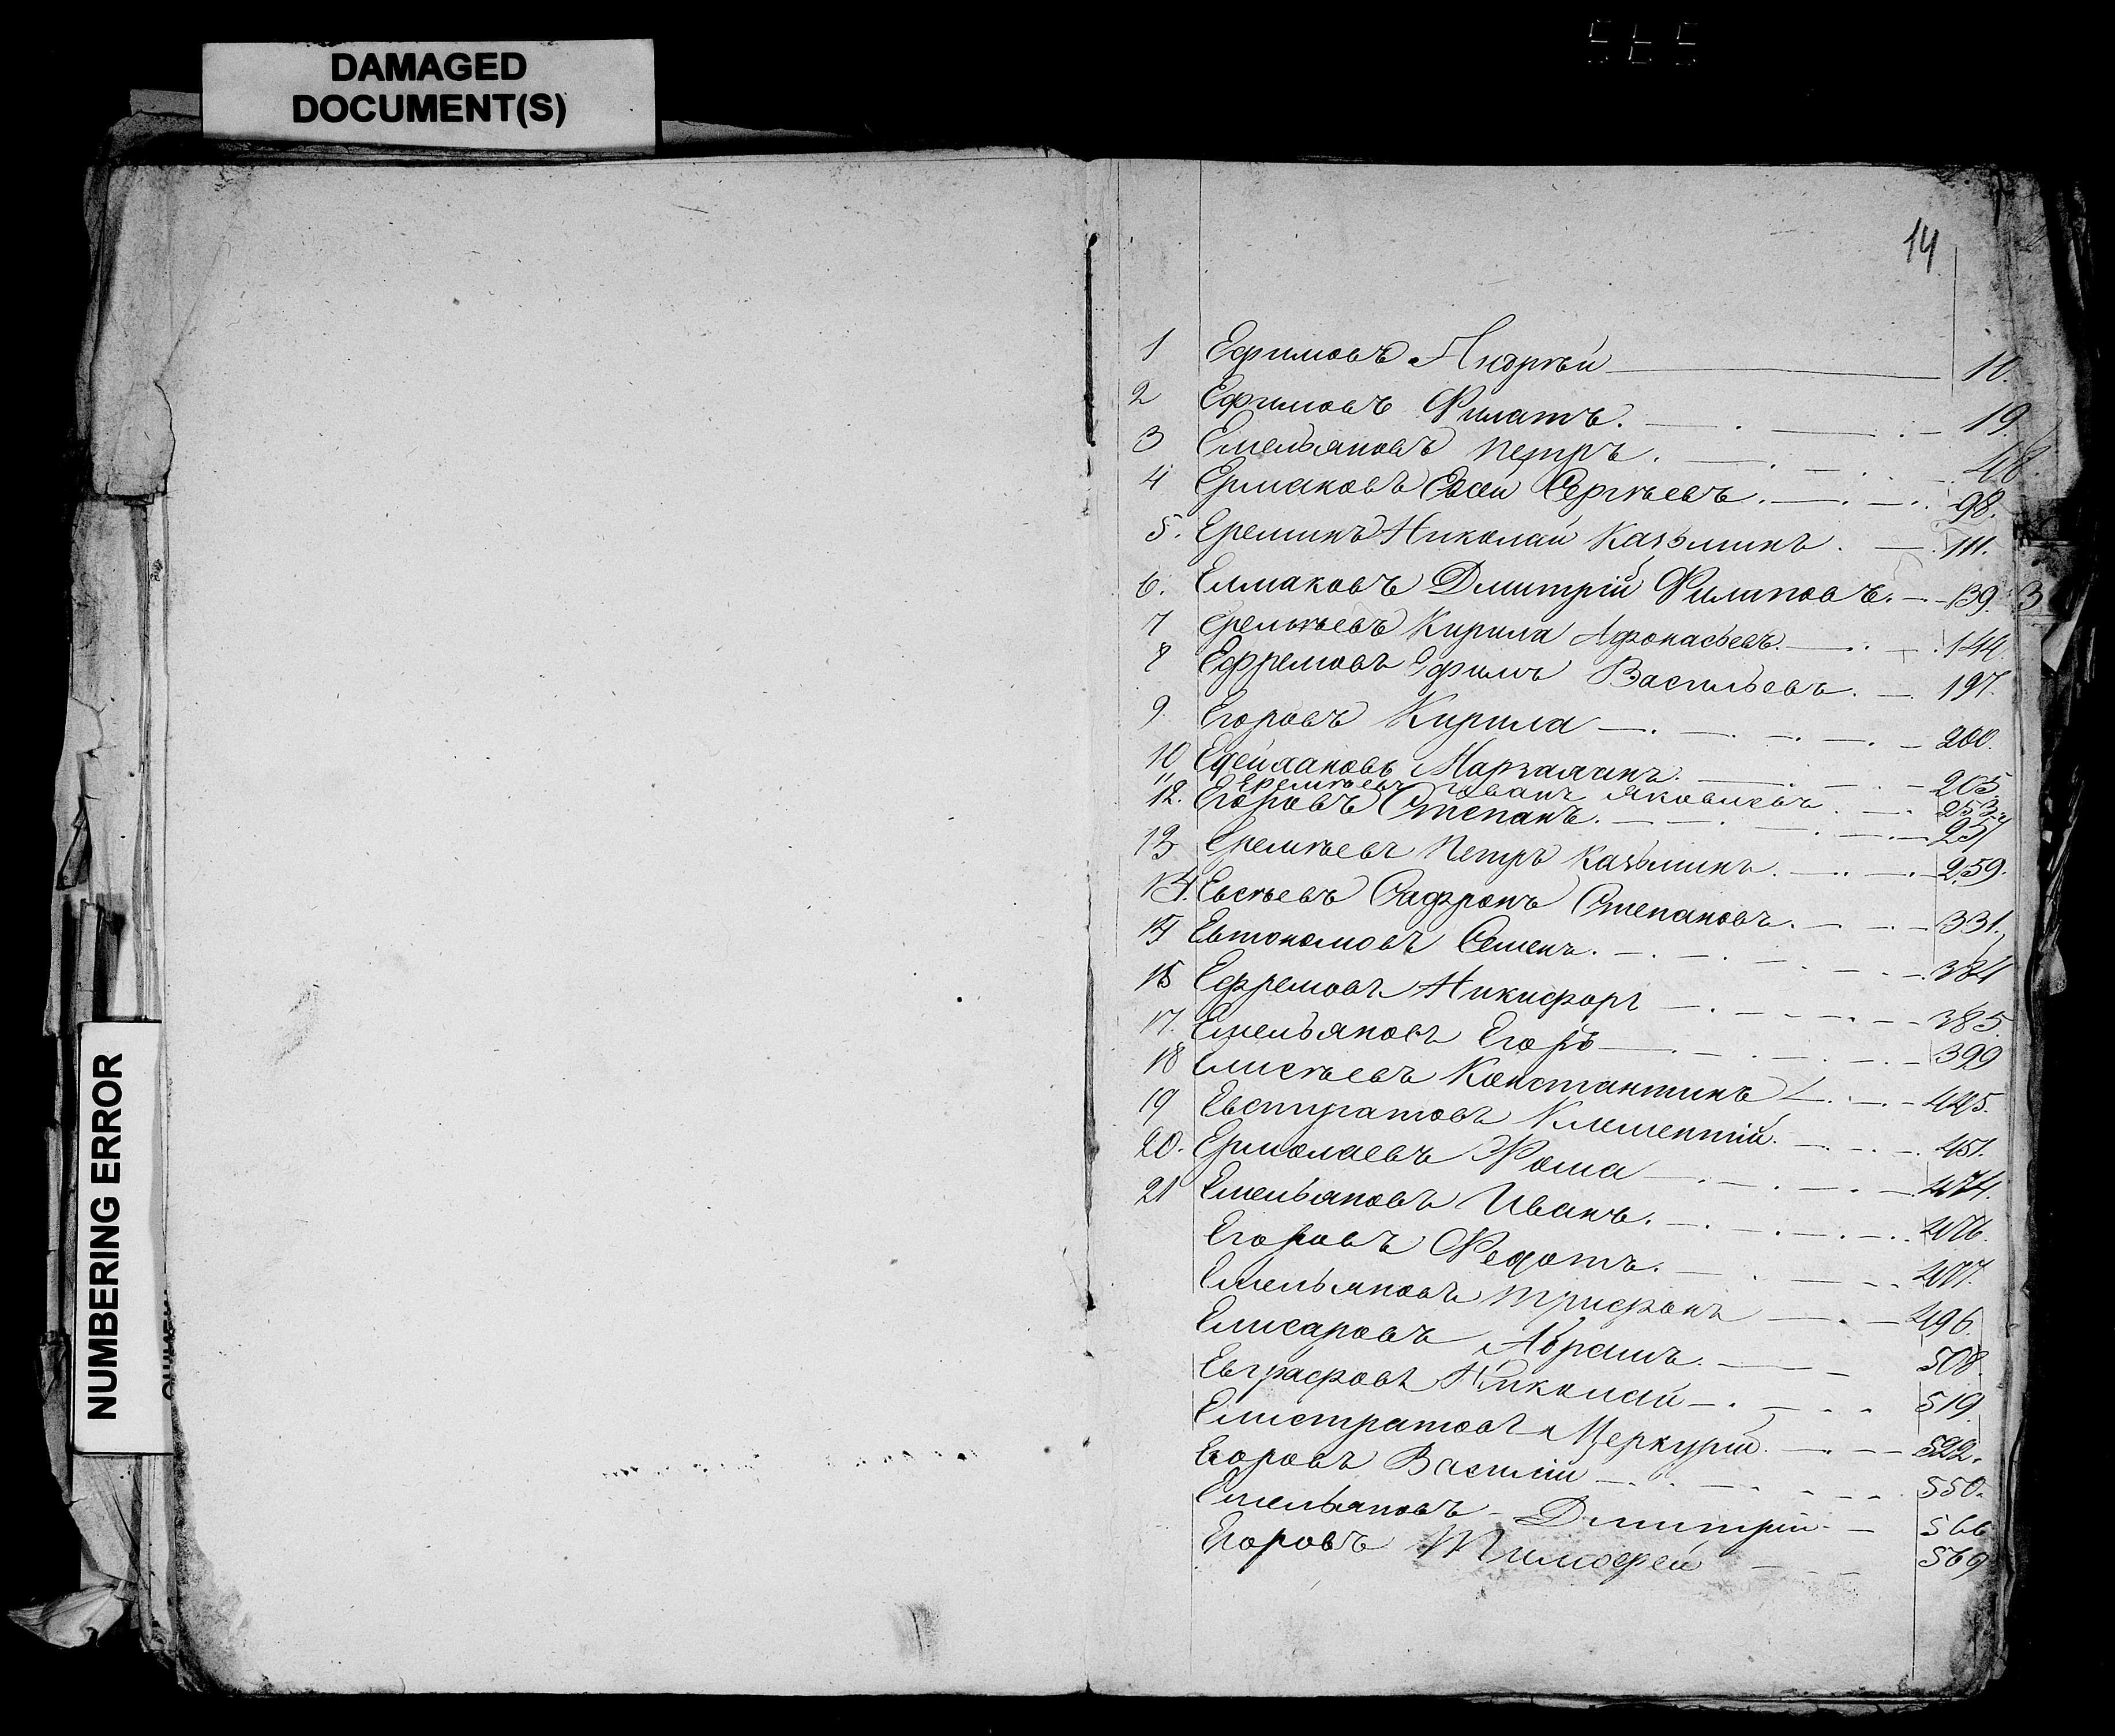 DAMAGED
DOCUMENT(S)
NUMBERING ERROR
14
1 Ефимовъ Андрей 10.
2 Ефимовъ Филатъ. 19.
3 Емельяновъ Петръ. 48.
4 Ермаковъ Евсей Сергѣевъ. 98.
5. Ереминъ Николай Казьминъ. 111.
6. Елмаковъ Дмитрій Филиповъ. 139. 3
7 Еремѣевъ Кирила Афонасьевъ. 144.
8 Ефремовъ Ефимъ Васильевъ. 197.
9. Егоровъ Кирила 200.
10 205.
11 Еремѣевъ Иванъ Яковлевъ. 253.
12. Егоровъ Степанъ. 257
13 Еремѣевъ Петръ Казьминъ. 259.
14. Евсѣевъ Сафронъ Степановъ. 331.
15 Евтономовъ Семенъ. 384
16 Ефремовъ Никифоръ 385.
17. Емельяновъ Егоръ 399
18 Елисѣевъ Константинъ 445.
19 Евстратовъ Клементій. 451.
20. Ермолаевъ Фома 474.
21 Емельяновъ Иванъ. 476.
Егоровъ Федотъ. 477.
Емельяновъ Трифонъ 496.
Елисаровъ Абрамъ. 508.
Евграфовъ Николай 519.
Елистратовъ Меркурій. 522.
Егоровъ Василій 550.
Емельяновъ Дмитрій 566
Егоровъ Тимофей 569